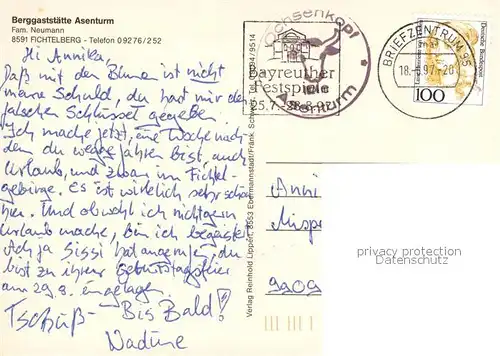 Berggaststätte Asenturm
Fam. Neumann
8591 FICHTELBERG - Telefon 09276/252
Hi Annika,
Daß mit den Blumen ist nicht
meine Schuld, du hast mir den
falschen Schlüssel gegeben.
Ich mache jetzt, eine Woche nach-
dem du weggefahren bist, auch
Urlaub, und zwar im Fichtel-
gebirge. Es ist wirklich sehr schön
hier. Und obwohl ich nicht gern
Urlaub mache, bin ich begeistert.
Ach ja Sissi hat angerufen, du
bist zu ihrer Geburtstagsfeier
am 29.8. eingeladen.
Tschüß - Bis Bald!
Nadine
Verlag Reinhold Lippert, 8553 Ebermannstadt/Fränk.
Ochsenkopf
Asenturm
Bayreuther
Festspiele
25.7.-28.8.97
BRIEFZENTRUM 95
18.-8.97-20
Deutsche Bundespost
100
Anni
Mispe
9909
privacy protection
Datenschutz